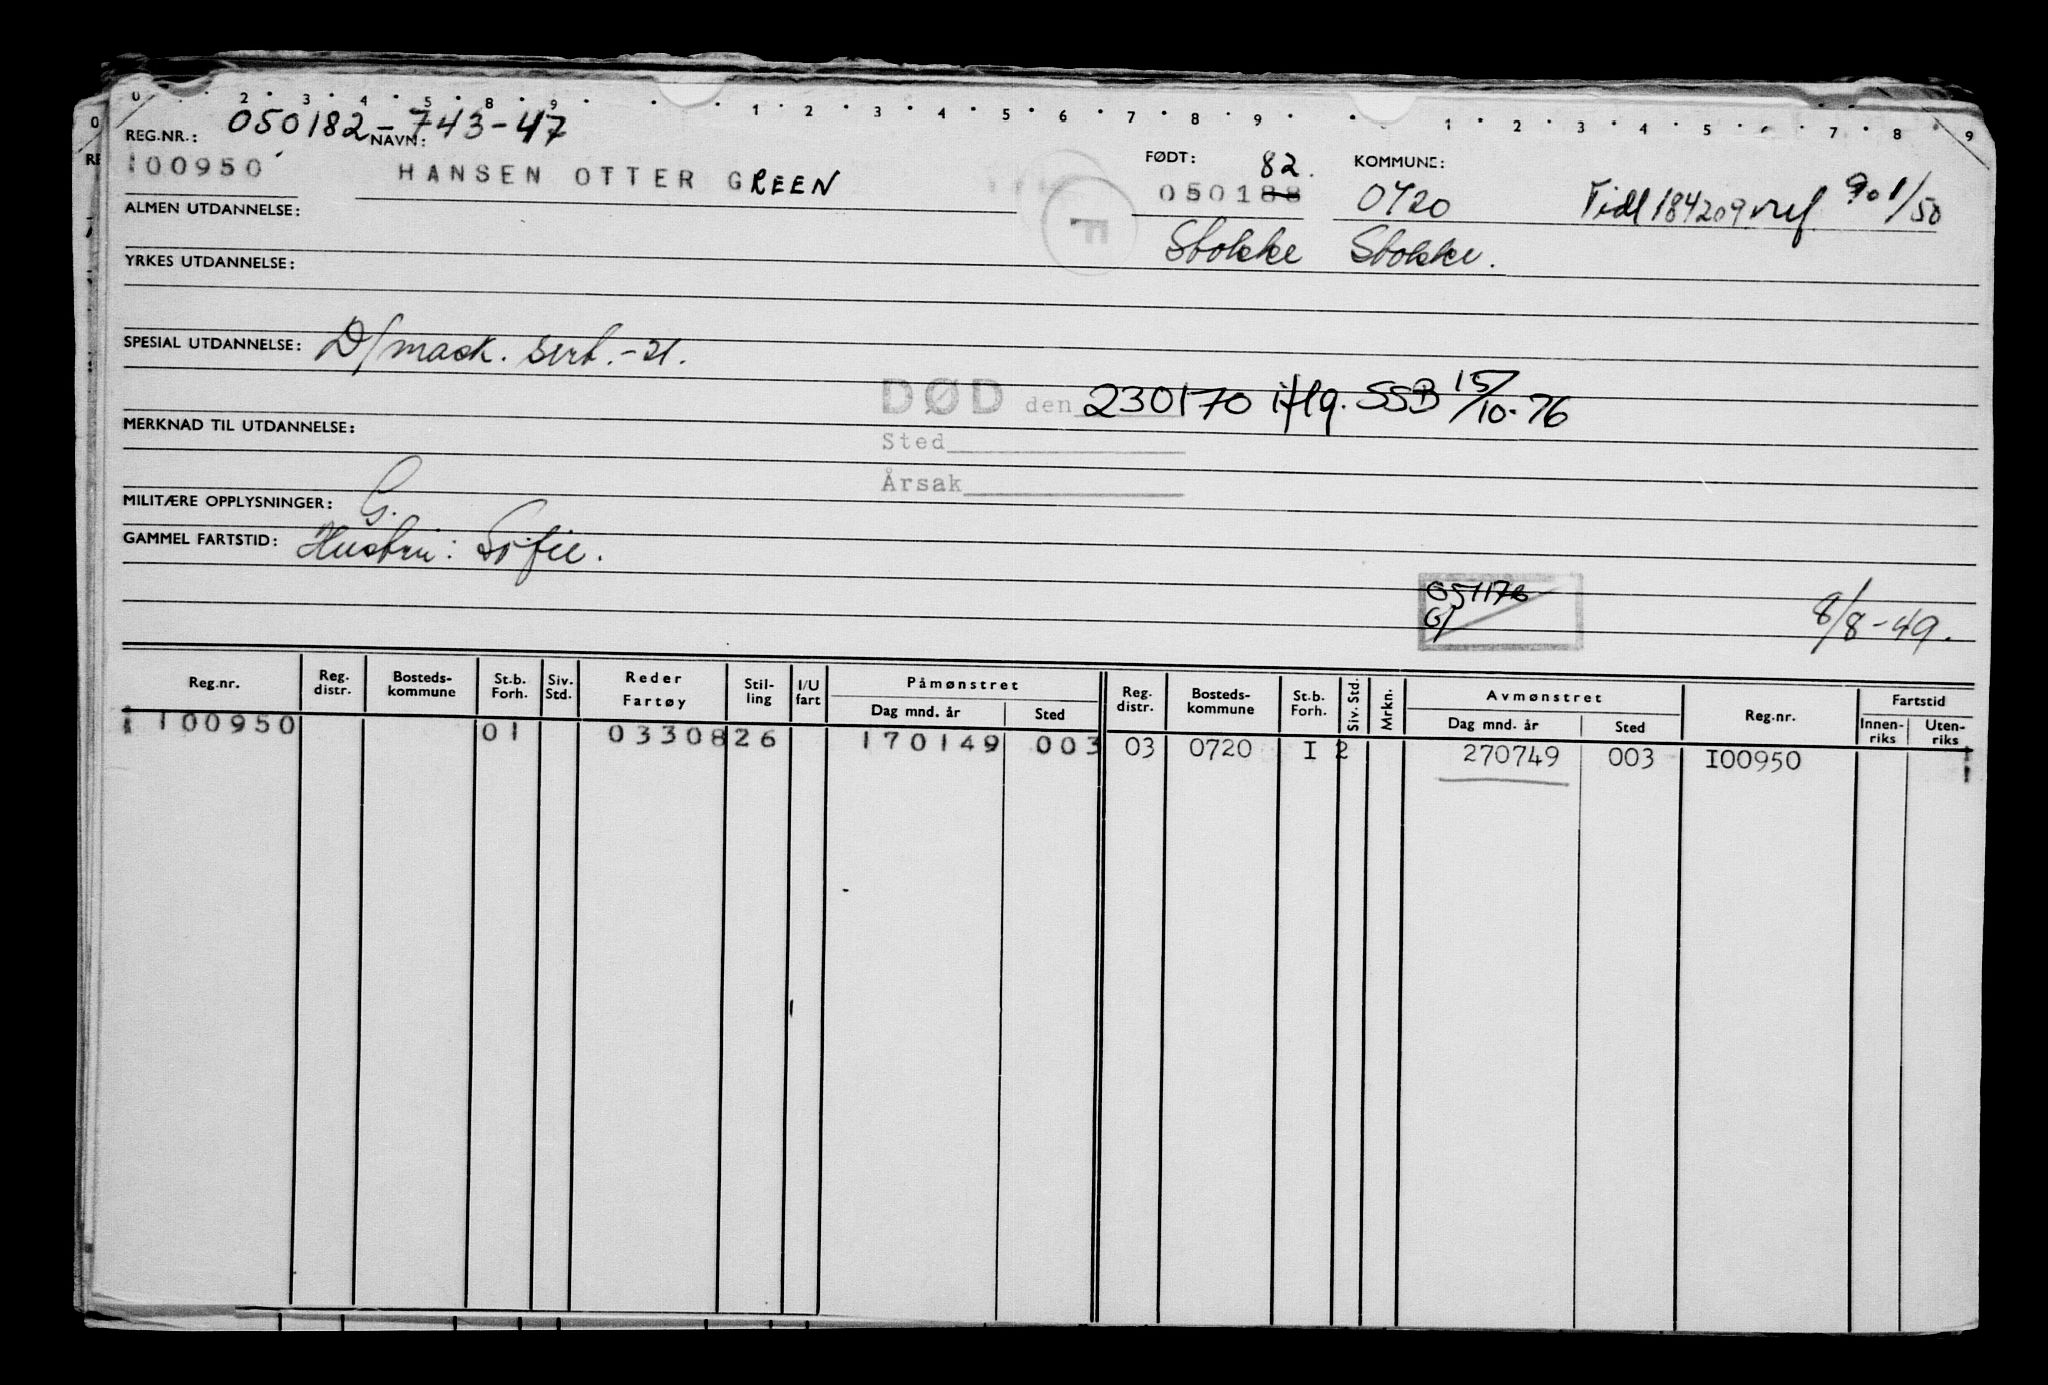 0 2 3 4 5 8 9 1 2 3 4 5 6 7 8 9 1 2 3 4 5 7 8 9
REG.NR.: 050182-743-47 NAVN: FØDT: 82. KOMMUNE:
100950 HANSEN OTTER GREEN 050188 0720 Tidl 184209
ALMEN UTDANNELSE: F Stokke Stokke.
YRKES UTDANNELSE:
SPESIAL UTDANNELSE: D/mask. sert. -21.
DØD den 230170 iflg. SSB 15/10-76
MERKNAD TIL UTDANNELSE:
Sted
Årsak
MILITÆRE OPPLYSNINGER: G.
GAMMEL FARTSTID: Hustru: Sofie.
051176
G/
8/8-49.
Reg.nr. Reg. distr. Bosteds-kommune St.b. Forh. Siv. Std. Reder Fartøy Stil-ling I/U fart Påmønstret Dag mnd. år Sted Reg. distr. Bosteds-kommune St.b. Forh. Siv. Std. Mrkn. Avmønstret Dag mnd. år Sted Reg.nr. Fartstid Innen-riks Uten-riks
100950 01 0330826 170149 003 03 0720 I 2 270749 003 I00950